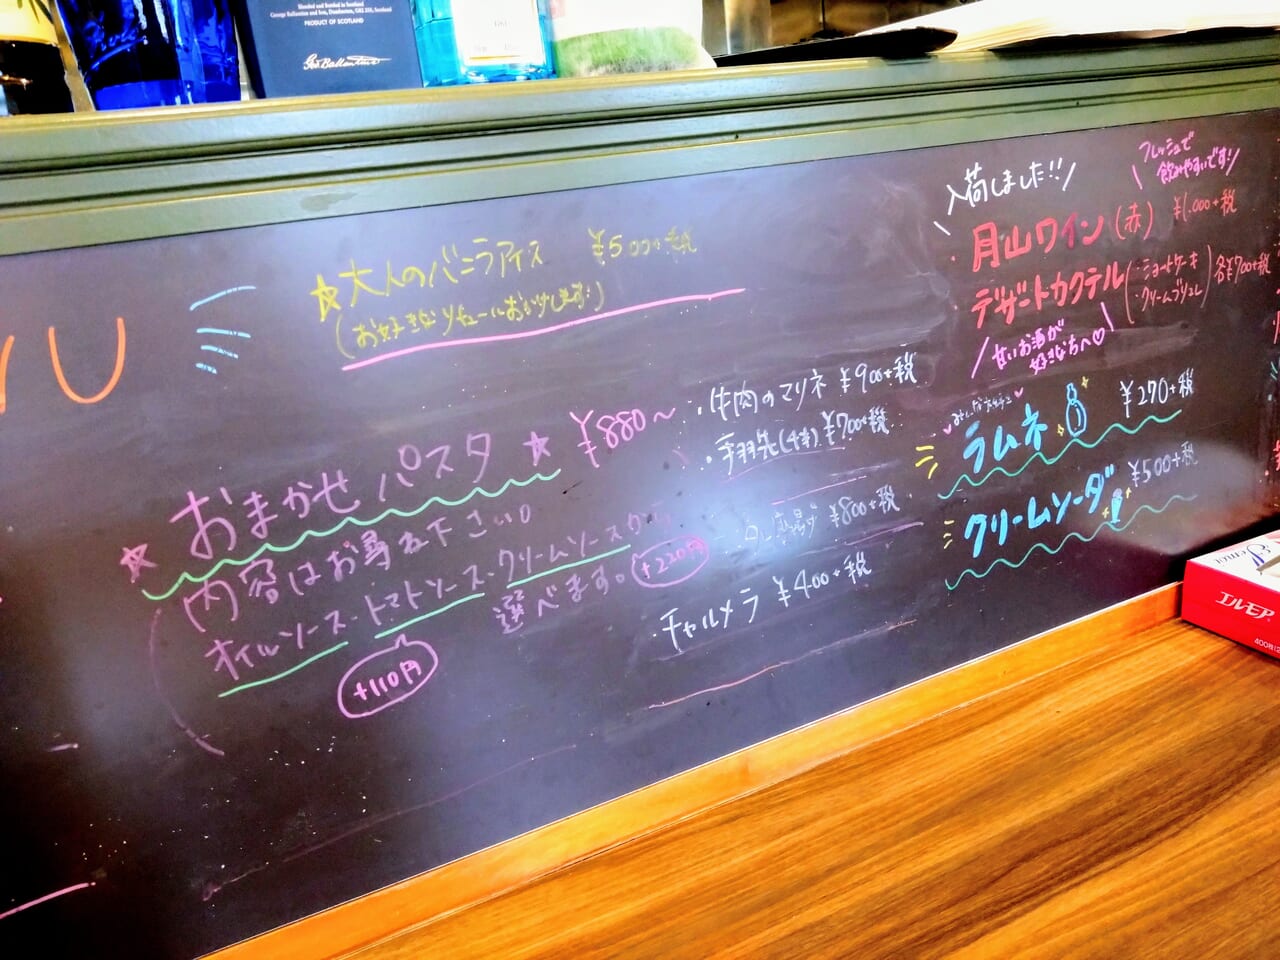 Blended and Bottled in Scotland
George Ballantine and Son, Dumbarton, G82 2SS, Scotland
PRODUCT OF SCOTLAND
Geo Ballantine
U
☆大人のバニラアイス ¥500+税
(お好きなリキュールおかけします!)
☆おまかせパスタ☆ ¥880〜
内容はお尋ね下さい。
オイルソース・トマトソース・クリームソースから
選べます。
+110円
+220円
・牛肉のマリネ ¥900+税
・手羽先(4本) ¥700+税
唐揚げ ¥800+税
・チャルメラ ¥400+税
入荷しました!!
フレッシュで
飲みやすいです!
・月山ワイン(赤) ¥1.000+税
・デザートカクテル(・ショートケーキ ・クリームブリュレ) 各¥700+税
甘いお酒が
好きな方へ♡
ラムネ ¥270+税
クリームソーダ ¥500+税
エルモア